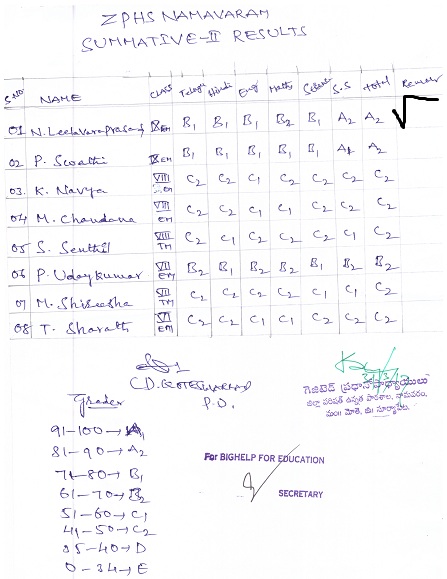 ZPHS NAMAVARAM
SUMMATIVE-II RESULTS
S.NO NAME CLASS Telugu Hindi Eng Maths Science S.S Total Remar
01 N. Leelavaraprasad IX EM B1 B1 B1 B2 B1 A2 A2 √
02 P. Swathi IX EM B1 B1 B1 B1 B1 A2 A2
03. K. Navya VIII EM C2 C2 C1 C2 C2 C2 C2
04 M. Chandana VIII EM C2 C2 C1 C1 C2 C2 C2
05 S. Senthil VIII TM C2 C1 C2 C2 C1 C2 C2
06 P. Uday Kumar VII EM B2 B1 B2 B2 B1 B2 B2
07 M. Shireesha VII TM C2 C2 C2 C2 C1 C1 C2
08 T. Sharath VII EM C2 C2 C1 C1 C2 C2 C2
C.D. KOTESWARRAO
P.D.
గెజిటెడ్ ప్రధానోపాధ్యాయులు
జిల్లా పరిషత్ ఉన్నత పాఠశాల, నామవరం,
మం॥ మోతె, జి॥ సూర్యాపేట.
Grades
91-100→A1
81-90→A2
71-80→B1
61-70→B2
51-60→C1
41-50→C2
35-40→D
0-34→E
For BIGHELP FOR EDUCATION
SECRETARY